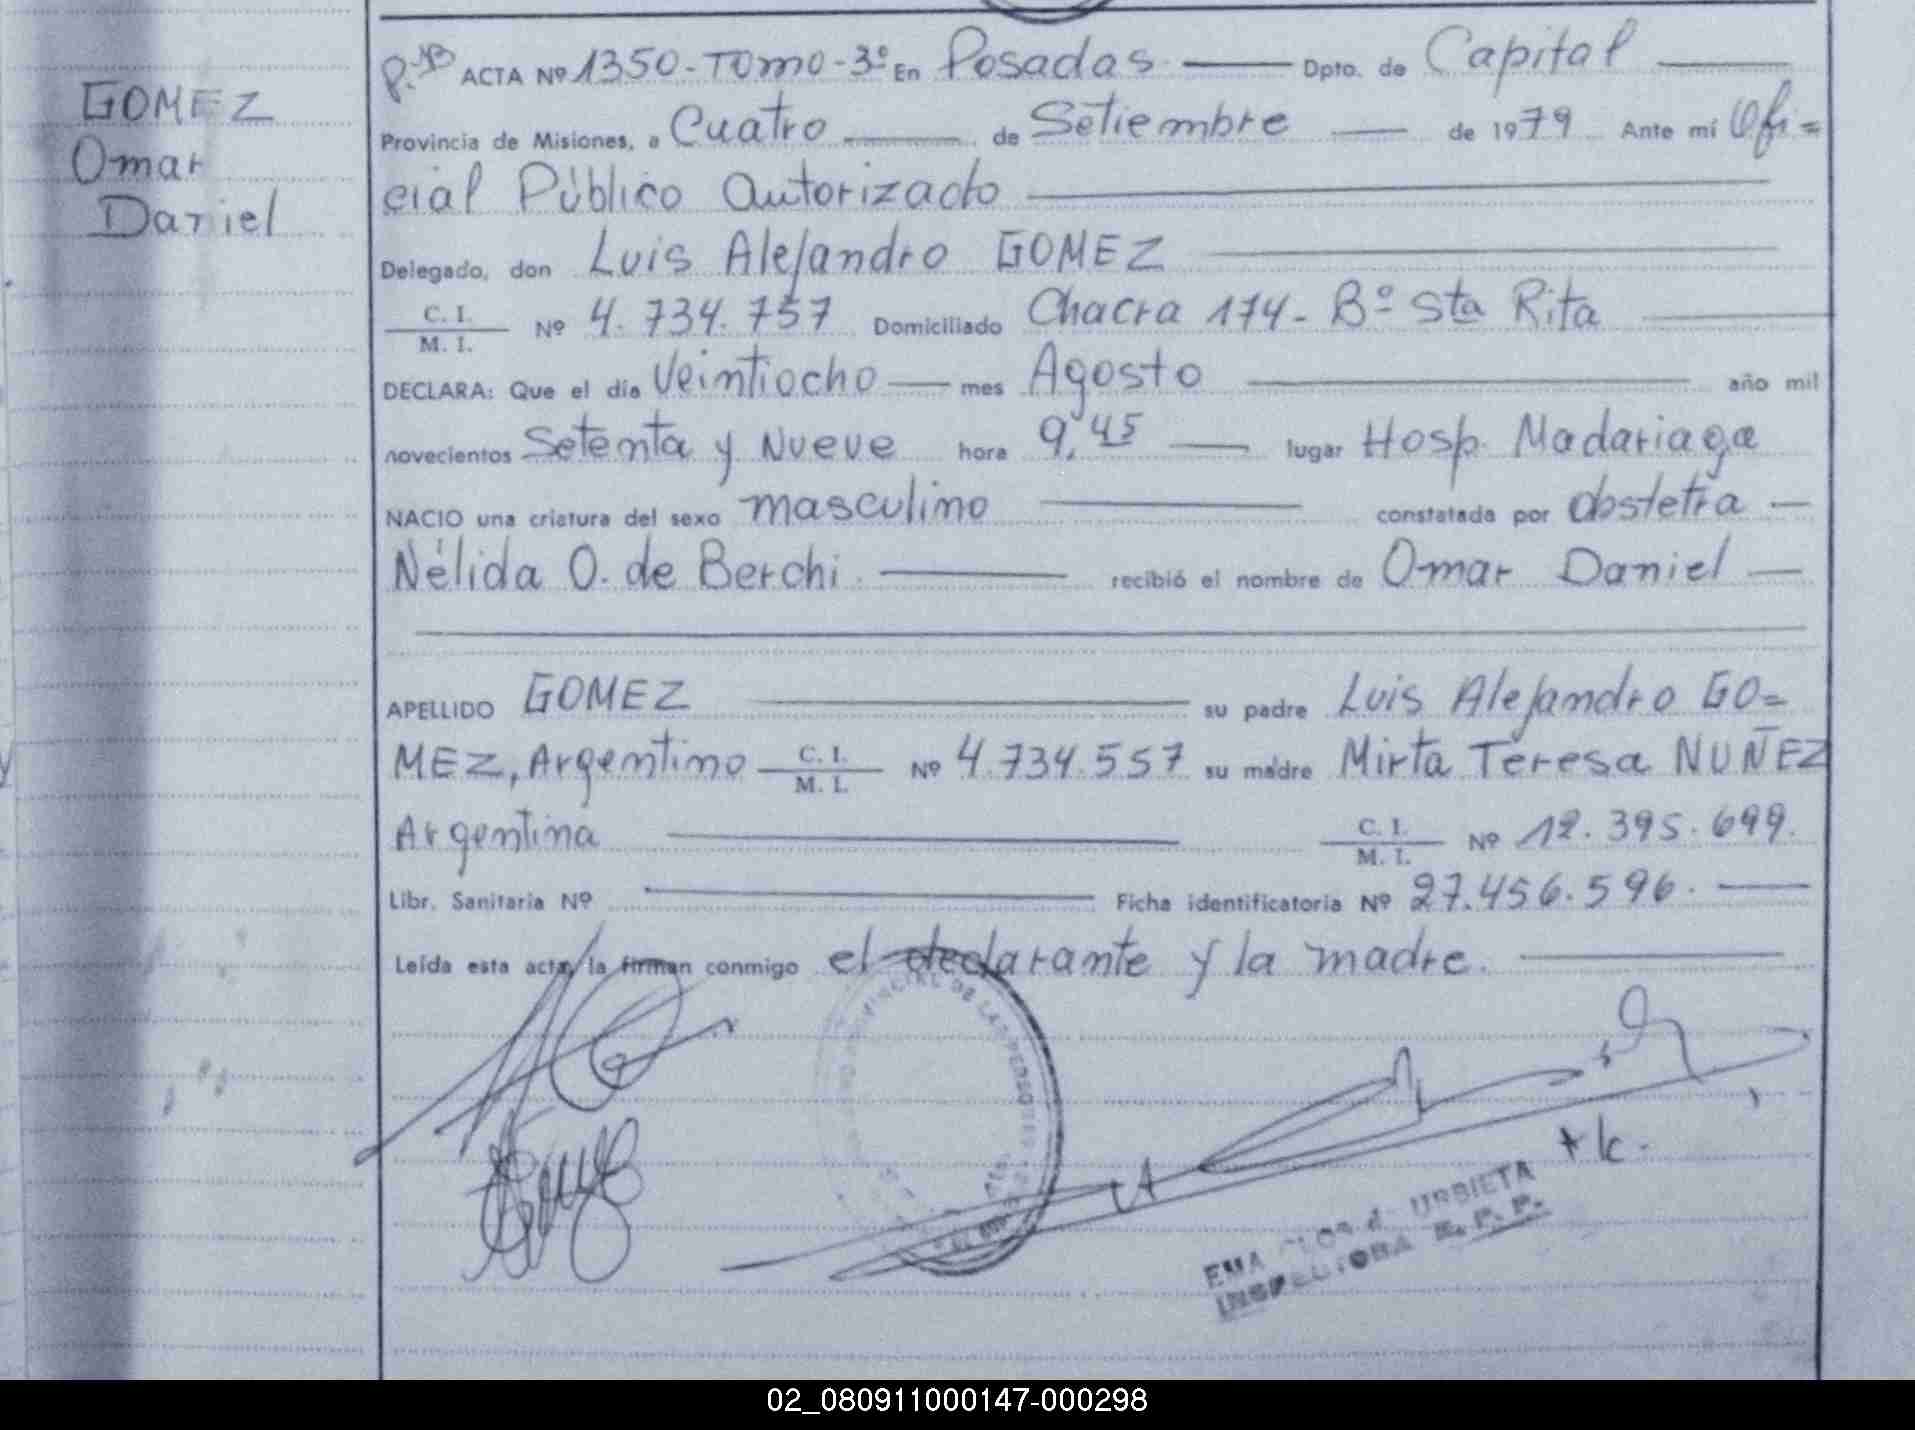 GOMEZ
Omar
Daniel
ACTA Nº 1350-Tomo-3º En Posadas Dpto. de Capital
Provincia de Misiones, a Cuatro de Setiembre de 1979 Ante mí Ofi=
cial Público Autorizado
Delegado, don Luis Alejandro GOMEZ
C. I.
M. I. Nº 4.734.757 Domiciliado Chacra 174- Bº Sta Rita
DECLARA: Que el día Veintiocho mes Agosto año mil
novecientos Setenta y Nueve hora 9,45 lugar Hosp. Madariaga
NACIO una criatura del sexo masculino constatada por obstetra
Nélida O. de Berchi. recibió el nombre de Omar Daniel
APELLIDO GOMEZ su padre Luis Alejandro GO=
MEZ, Argentino C. I. M. I. Nº 4.734.557 su madre Mirta Teresa NUÑEZ
Argentina C. I. M. I. Nº 12.395.699.
Libr. Sanitaria Nº Ficha identificatoria Nº 27.456.596.
Leída esta acta, la firman conmigo el declarante y la madre.
DE LAS PERSONAS
EMA FLOR d. URBIETA
INSPECTORA R. P. P.
02_080911000147-000298